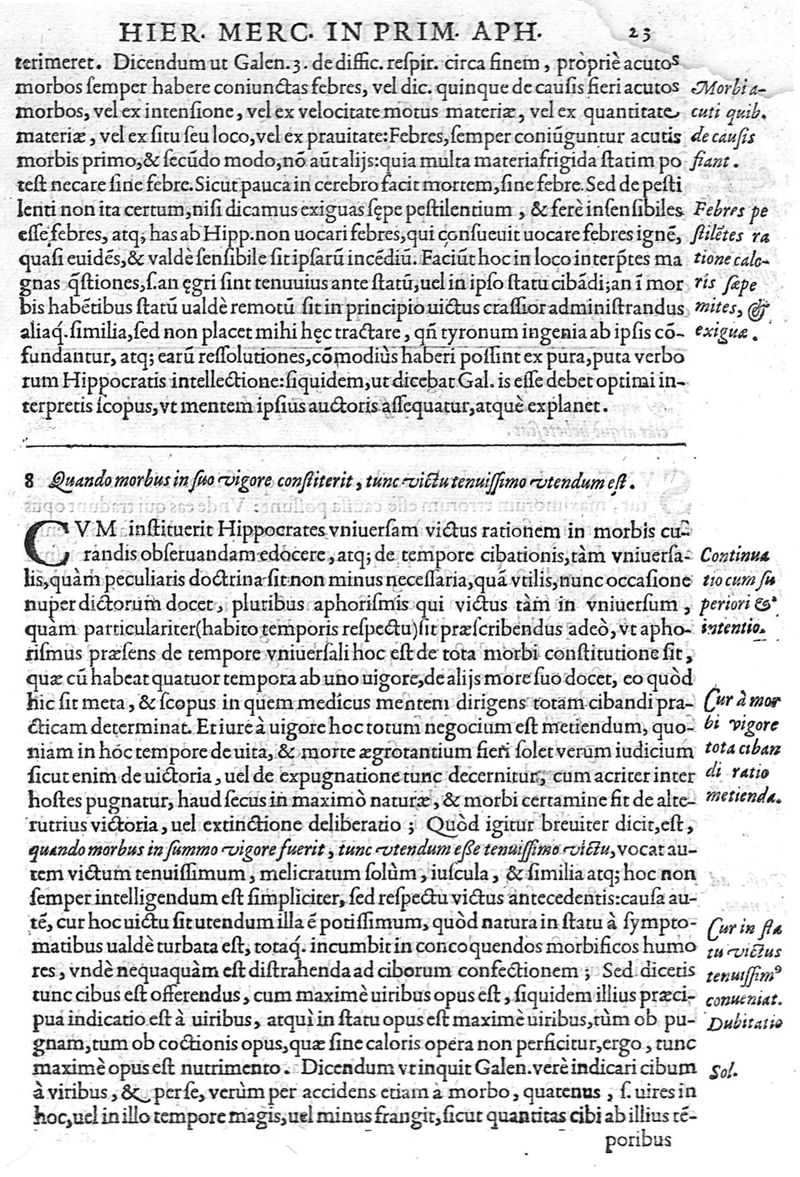 HIER. MERC. IN PRIM. APH. 23
terimeret. Dicendum ut Galen. 3. de diffic. reſpir. circa finem, propriè acutos
morbos ſemper habere coniunctas febres, vel dic. quinque de cauſis fieri acutos
morbos, vel ex intenſione, vel ex velocitate motus materiæ, vel ex quantitate
materiæ, vel ex ſitu ſeu loco, vel ex prauitate: Febres, ſemper coniũguntur acutis
morbis primo, & ſecũdo modo, nõ aũt alijs: quia multa materia frigida ſtatim po
teſt necare ſine febre. Sicut pauca in cerebro facit mortem, ſine febre. Sed de peſti
lenti non ita certum, niſi dicamus exiguas ſępe peſtilentium, & ferè inſenſibiles
eſſe febres, atq; has ab Hipp. non uocari febres, qui conſueuit uocare febres ignẽ,
quaſi euidẽs, & valdè ſenſibile ſit ipſarũ incẽdiũ. Faciũt hoc in loco interp̃tes ma
gnas q̃ſtiones, ſ. an ęgri ſint tenuuius ante ſtatũ, uel in ipſo ſtatu cibãdi; an ĩ mor
bis habẽtibus ſtatũ ualdè remotũ ſit in principio uictus craſſior adminiſtrandus
aliaq́. ſimilia, ſed non placet mihi hęc tractare, qñ tyronum ingenia ab ipſis cõ-
fundantur, atq; earũ reſſolutiones, cõmodiùs haberi poſſint ex pura, puta verbo
rum Hippocratis intellectione: ſiquidem, ut dicebat Gal. is eſſe debet optimi in-
terpretis ſcopus, vt mentem ipſius auctoris aſſequatur, atquè explanet.
Morbi a-
cuti quib.
de cauſis
fiant.
Febres pe
ſtilẽtes ra
tione calo-
ris ſæpe
mites, &
exiguæ.
8 Quando morbus in ſuo vigore conſtiterit, tunc victu tenuiſſimo vtendum eſt.
CVM inſtituerit Hippocrates vniuerſam victus rationem in morbis cu-
randis obſeruandam edocere, atq; de tempore cibationis, tàm vniuerſa-
lis, quàm peculiaris doctrina ſit non minus neceſſaria, quã vtilis, nunc occaſione
nuper dictorum docet, pluribus aphoriſmis qui victus tàm in vniuerſum,
quàm particulariter (habito temporis reſpectu) ſit præſcribendus adeò, vt apho-
riſmus præſens de tempore vniuerſali hoc eſt de tota morbi conſtitutione ſit,
quæ cũ habeat quatuor tempora ab uno uigore, de alijs more ſuo docet, eo quòd
hic ſit meta, & ſcopus in quem medicus mentem dirigens totam cibandi pra-
cticam determinat. Et iure à uigore hoc totum negocium eſt metiendum, quo-
niam in hoc tempore de uita, & morte ægrotantium fieri ſolet verum iudicium
ſicut enim de uictoria, uel de expugnatione tunc decernitur, cum acriter inter
hoſtes pugnatur, haud ſecus in maximò naturæ, & morbi certamine fit de alte-
rutrius victoria, uel extinctione deliberatio; Quòd igitur breuiter dicit, eſt,
quando morbus in ſummo vigore fuerit, tunc vtendum eſſe tenuiſſimo victu, vocat au-
tem victum tenuiſſimum, melicratum ſolùm, iuſcula, & ſimilia atq; hoc non
ſemper intelligendum eſt ſimpliciter, ſed reſpectu victus antecedentis: cauſa au-
tẽ, cur hoc uictu ſit utendum illa ẽ potiſſimum, quòd natura in ſtatu à ſympto-
matibus ualdè turbata eſt, totaq́. incumbit in concoquendos morbificos humo
res, vndè nequaquàm eſt diſtrahenda ad ciborum confectionem; Sed dicetis
tunc cibus eſt offerendus, cum maximè uiribus opus eſt, ſiquidem illius præci-
pua indicatio eſt à uiribus, atquì in ſtatu opus eſt maximè uiribus, tùm ob pu-
gnam, tum ob coctionis opus, quæ ſine caloris opera non perficitur, ergo, tunc
maximè opus eſt nutrimento. Dicendum vt inquit Galen. verè indicari cibum
à viribus, & per ſe, verùm per accidens etiam à morbo, quatenus, ſ. uires in
hoc, uel in illo tempore magis, uel minus frangit, ſicut quantitas cibi ab illius tẽ-
poribus
Continua
tio cum ſu
periori &
intentio.
Cur à mor
bi vigore
tota ciban
di ratio
metienda.
Cur in ſta
tu victus
tenuiſſimꝰ
conueniat.
Dubitatio
Sol.